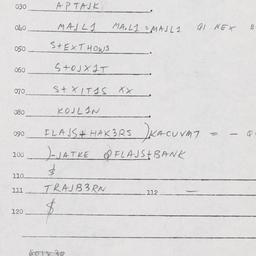 030 APTAJK.
040 MAJL1 MAJL1=MAJL1 QI NEX
050 S+EXTHOWS.
060 S+OJX1T.
070 S+XIT1S KX.
080 KOJL1N.
090 FLAJS+HAK3RS )KACUVAT = - Q
100 )-JATKE QFLAJS+BANK
110 $
111 TRAJB3RN 112 —
120 $